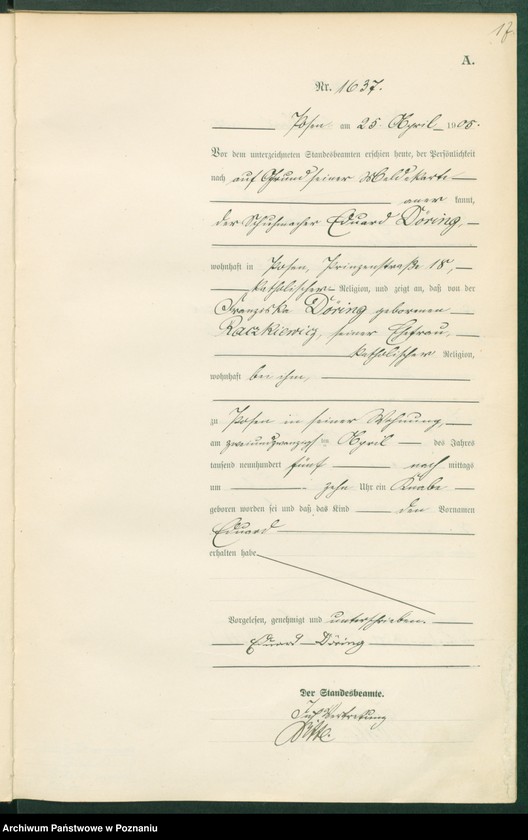 17
A.
Nr. 1637.
Posen am 25. April 1905.
Vor dem unterzeichneten Standesbeamten erschien heute, der Persönlichkeit
nach auf Grund seiner Meldekarte
aner kannt,
der Schuhmacher Eduard Döring,
wohnhaft in Posen, Prinzenstraße 18,
katholischer Religion, und zeigt an, daß von der
Franziska Döring geborenen
Raczkiewicz, seiner Ehefrau,
katholischer Religion,
wohnhaft bei ihm,
zu Posen in seiner Wohnung,
am zweiundzwanzigsten April des Jahres
tausend neunhundert fünf nach mittags
um zehn Uhr ein Knabe
geboren worden sei und daß das Kind den Vornamen
Eduard
erhalten habe.
Vorgelesen, genehmigt und unterschrieben.
Eduard Döring
Der Standesbeamte.
In Vertretung
Archiwum Państwowe w Poznaniu